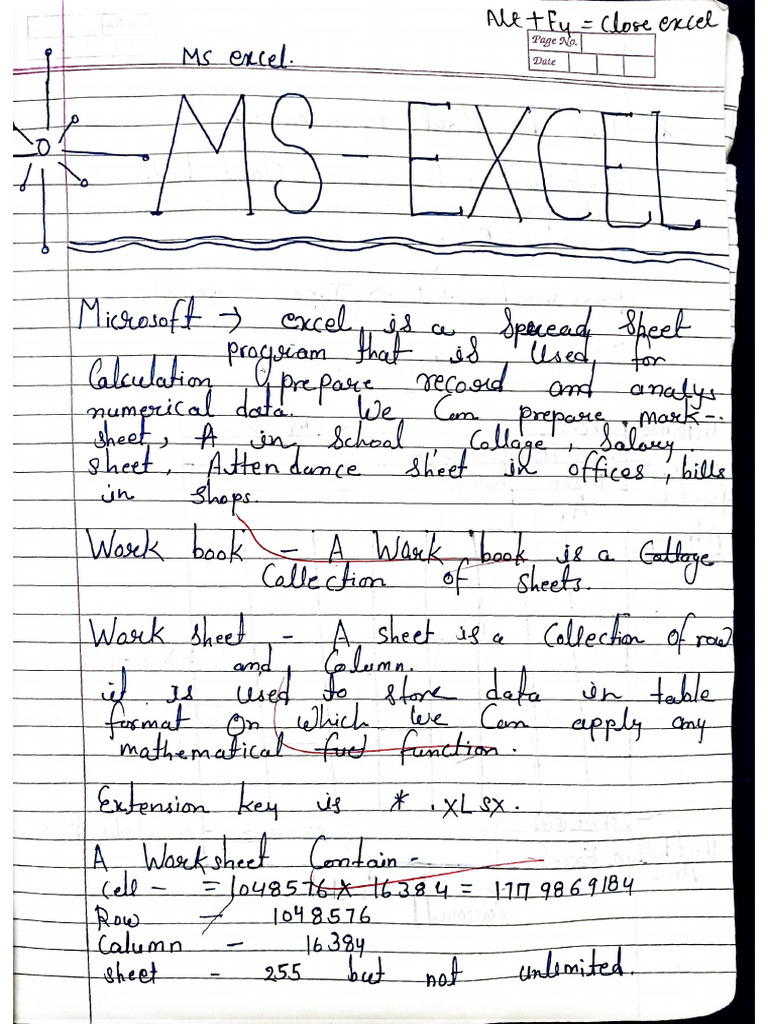 Alt + F4 = Close excel
Page No.
Date
Ms excel.
MS-EXCEL
Microsoft → excel is a Spread Sheet
program that is Used for
Calculation prepare record and analys
numerical data. We Can prepare mark-
sheet, A in School, Collage, Salary
sheet, Attendance sheet in offices, bills
in shops.
Work book - A Work book is a Collage
Collection of sheets.
Work sheet - A sheet is a Collection of row
and Column.
it is used to store data in table
format On which We Can apply any
mathematical fuc function.
Extension key is * .xLsx.
A Worksheet Contain -
Cell - = 1048576 x 16384 = 17179869184
Row - 1048576
Calumn - 16384
sheet - 255 but not unlimited.